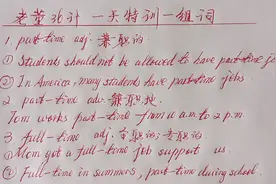 老董36计 一天特训一组词
1. part-time adj. 兼职的
① Students should not be allowed to have part-time jo
② In America, many students have part-time jobs
2 part-time adv. 兼职地
Tom works part-time from 11 a.m. to 2 p.m
3 full-time adj. 全职的 专职的
① Mom got a full-time job support us.
② Full-time in summers, part-time during school.